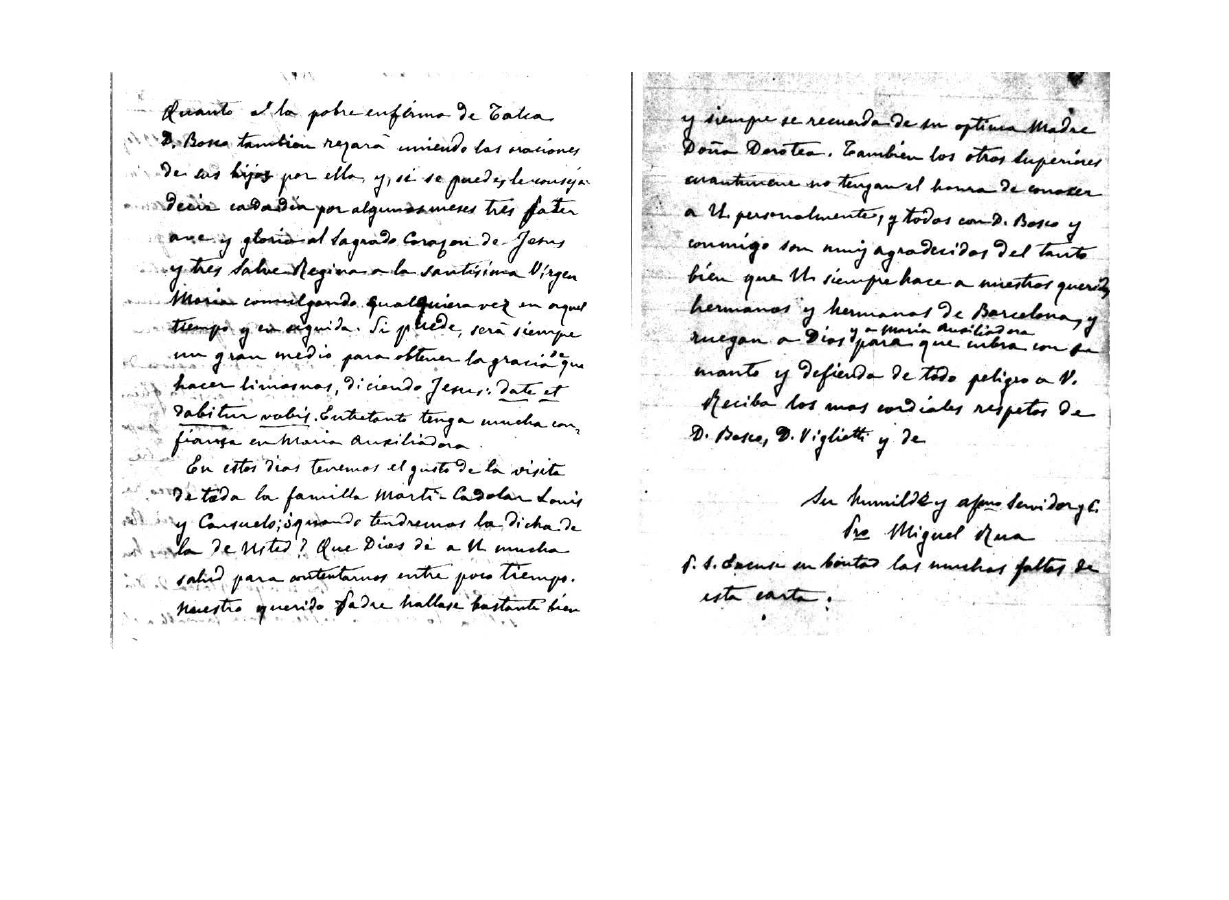 Quanto á la pobre enferma de Talca
D. Bosco tambien rezará uniendo las oraciones
de sus hijos por ella, y, si se puede, le conseja
decir cada dia por algunos meses tres Pater
ave y gloria al Sagrado Corazon de Jesus
y tres Salve Regina a la santisima Virgen
Maria comulgando qualquiera vez en aquel
tiempo y en seguida. Si puede, será siempre
un gran medio para obtener la gracia de que
hacer limosnas, diciendo Jesus: date et
dabitur vobis. Entretanto tenga mucha con-
fianza en Maria Auxiliadora.
En estos dias tenemos el gusto de la visita
de toda la familla Marti-Codolar Louis
y Consuelo; ¿quando tendremos la dicha de
la de Usted? Que Dios dé a U. mucha
salud para contentarnos entre poco tiempo.
Nuestro querido Padre hallase bastante bien
y siempre se recuerda de su optima Madre
Doña Dorotea. Tambien los otros Superiores
cuantunque no tengan el honra de conocer
a U. personalmente, y todos con D. Bosco y
conmigo son muy agradecidos del tanto
bien que U. siempre hace a nuestros querid
hermanos y hermanas de Barcelona, y
ruegan a Dios y a Maria Auxiliadora para que cubra con su
manto y defienda de todo peligro a V.
Reciba los mas cordiales respetos de
D. Bosco, D. Viglietti y de
Su humilde y afmo servidor y C.
Pro Miguel Rua
P. S. Escuse su bontad las muchas faltas de
esta carta.